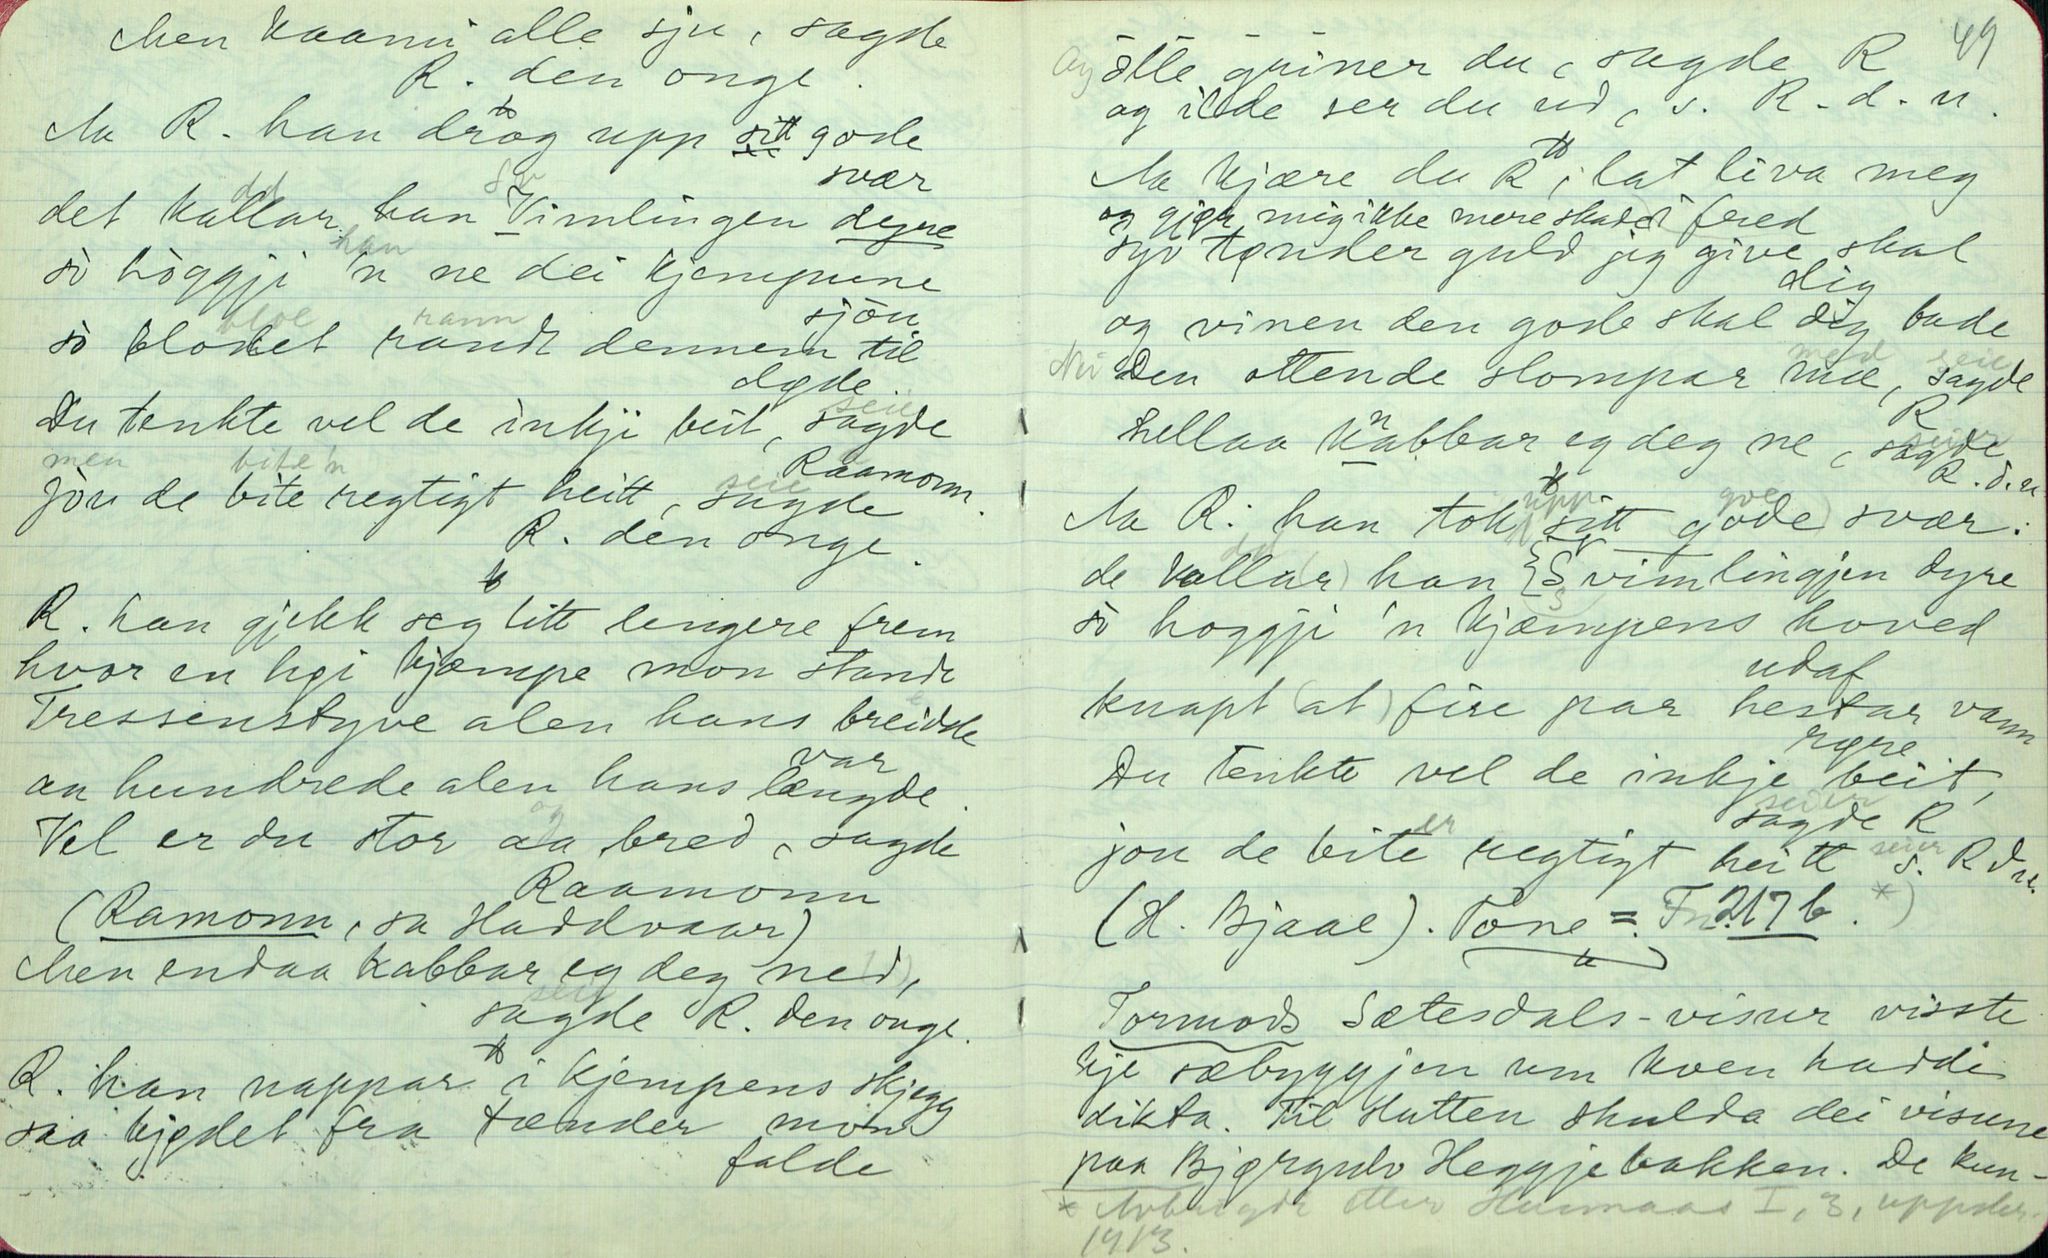 Men kaami alle sju, sagde
R. den onge.
Aa R. han drog upp sitt gode
svær
det kallar han Vimlingen dyre
so höggji 'n ne dei kjempune
sjòu
so blodet randt dennem til
døde.
Du tenkte vel de inkji beit, sagde
Raamonn.
jòu de bite regtigt heitt, sagde
R. den onge.
R. han gjekk seg litt lengere frem
hvor en høi kjæmpe mon stande
Tressenstyve alen hans breidde
var
an hundrede alen hans længde.
Vel er du stor aa bred, sagde
Raamonn
(Ramonn, sa Haddvaar)
Men endaa kabbar eg deg ned,
sagde R. den onge.
R. han nappar i kjempens skjegg
saa kjødet fra tænder mon
falde
49
Og ille griner du, sagde R
og ilde ser du ud, s. R. d. u.
Aa kjære du R, lat liva meg
i fred
og gjør mig ikke mere skade
syv tønder guld jeg give skal
dig
og vinen den gode skal dig bade
Den ottende slompar mæ, sagde
R
hellaa knabbar eg deg ne, sagde
R. d. u.
Aa R. han tok upp sitt gode svær.
de kallar han Svimlingjen dyre
so hoggji 'n kjæmpens hoved
udaf
knapt (at) fire par hestar vann
røre
Du tenkte vel de inkje beit,
sagde R
jou de bite regtigt heitt s. R d u.
(H. Bjaae). Tone = Fn. 217 b. *)
Tormods Sætesdals-visur visste
kje sæbyggjen um kven hadde
dikta. Til slutten skulda dei visune
paa Bjørgulv Heggjebakken. De kun-
* I, 3,
1913.